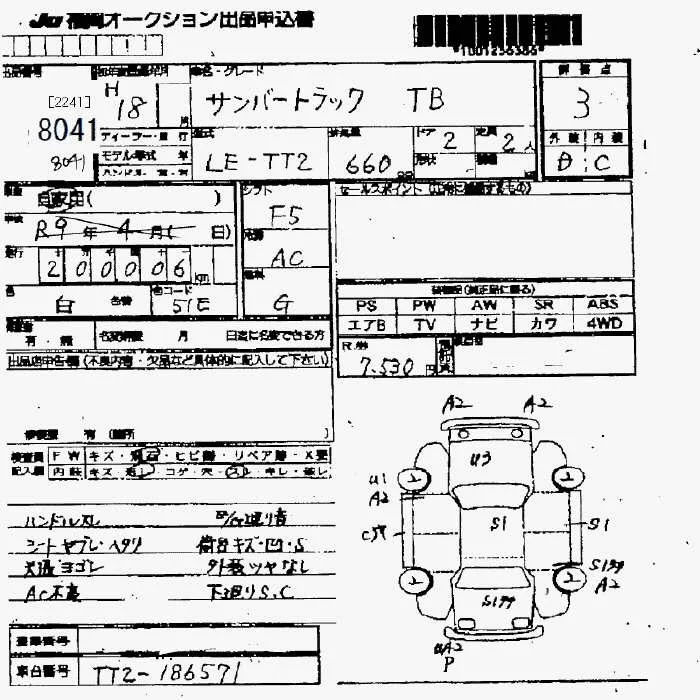 JU福岡オークション出品申込書
*1001256386*
出品番号
車名・グレード
評価点
[2241]
8041
8041
H 18 月
サンバートラック TB
3
ディーラー・並行
型式
排気量
ドア
定員
外装 内装
モデル年式 年
LE-TT2
660 cc
2
2 人
D C
形状
自家用( )
シフト
F5
セールスポイント
車検
R9年4月( 日)
冷房
AC
走行
200006 km
燃料
G
色
白
色替
色コード
51E
PS PW AW SR ABS
エアB TV ナビ カワ 4WD
有・無
名変期限 月 日迄に名変できる方
R券
7,530 円
出品店申告欄(不良内容・欠品など具体的に記入して下さい)
修復歴 有 (箇所
検査員 FW キズ・飛石・ヒビ跡・リペア跡・X要
記入欄 内装 キズ・コゲ・穴・スレ・キレ
ハンドルスレ
シートヤブレ・ヘタリ
荷台キズ・凹・S
天張ヨゴレ
外装ツヤなし
AC不良
下廻りS,C
A2 A2
U3
U1
2
2
A2
C穴
S1
S1
2
2
A2
UA2
P
登録番号
車台番号
TT2-186571